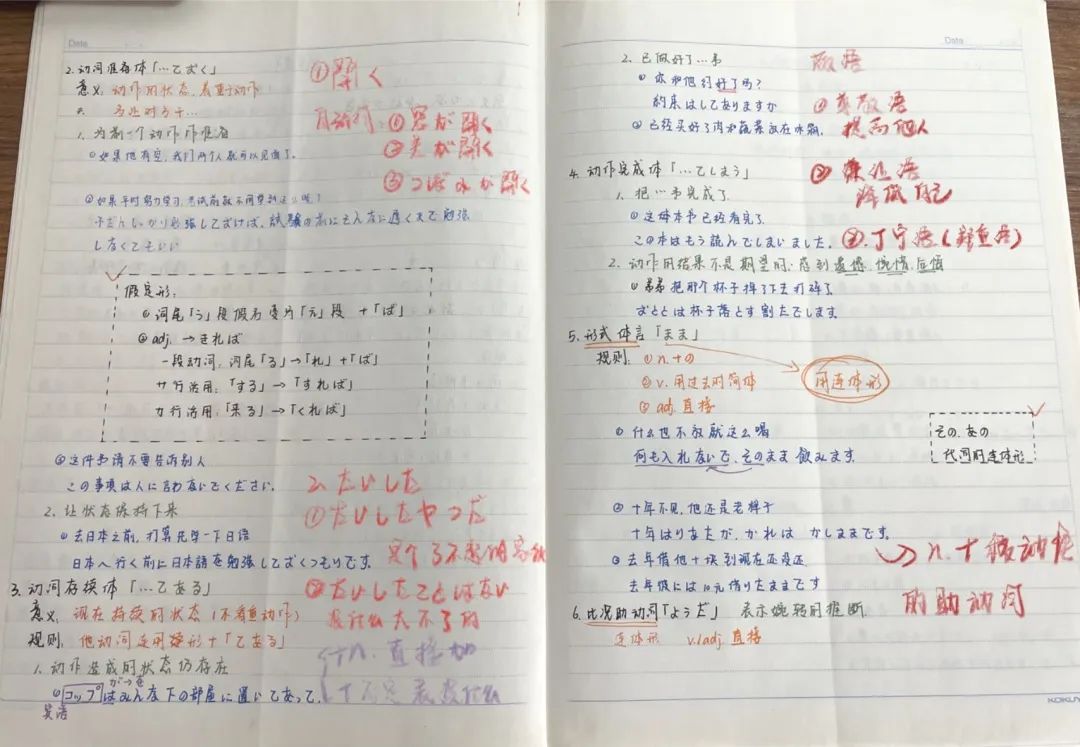 Date
2. 动词准备体「…ておく」
意义: 动作用状态,着重于动作
1. 为某一个动作作准备
①如果他有空,我们两个人就可以见面了。
②如果平时努力学习,考试前就不用学到这么晚!
ふだんしっかり勉強しておけば、試験の前にそんなに遅くまで勉強
しなくてもいい
假定形:
① 词尾「う」段假名变为「え」段 +「ば」
② adj. → ければ
一段动词: 词尾「る」→「れ」+「ば」
サ行活用:「する」→「すれば」
カ行活用:「来る」→「くれば」
③这件事请不要告诉别人
この事項は人に言わないでください。
2. 让状态保持下来
① 去日本之前,打算先学一下日语
日本へ行く前に日本語を勉強しておくつもりです。
3. 动词存续体「…てある」
意义: 现在持续的状态 (不着重动作)
规则: 他动词连用 +「てある」
1. 动作造成的状态仍存在
が→を
①コップはみんな下の部屋に置いてあって、
英语
①開く
自动词
①窓が開く
③つぼみが開く
2. たいした
①たいしたやつだ
②たいしたことはない
没什么大不了的
+n. 直接加
+否定 表没什么
Date
2. 已做好了…事
① 你和他们约好了吗?
約束はしてありますか
② 已经买好了肉和蔬菜放在冰箱。
4. 动作完成体「…てしまう」
1. 把…事完成了
① 这每本书已经看完了
この本はもう読んでしまいました。
2. 动作用结果不是期望的,感到遗憾,惋惜,后悔
① 弟弟把那个杯子掉了下去打碎了
おととは杯子落とす割たでします
5. 形式体言「まま」
规则: ① n.+の
② v. 用过去时简体
③ adj. 直接
用连体形
① 什么也不放就这么喝
何も入れないで、そのまま飲みます。
その、あの
代词用连体形
② 十年不见,他还是老样子
十年はりあたが、かれは かしままです。
③ 去年借他十块到现在还没还
去年级には10元借りたままです
6. 比况助动词「ようだ」 表示婉转的推断
连体形 v./adj. 直接
敬语
①尊敬语
提高他人
②谦逊语
降低自己
③.丁寧语(郑重语)
的助动词